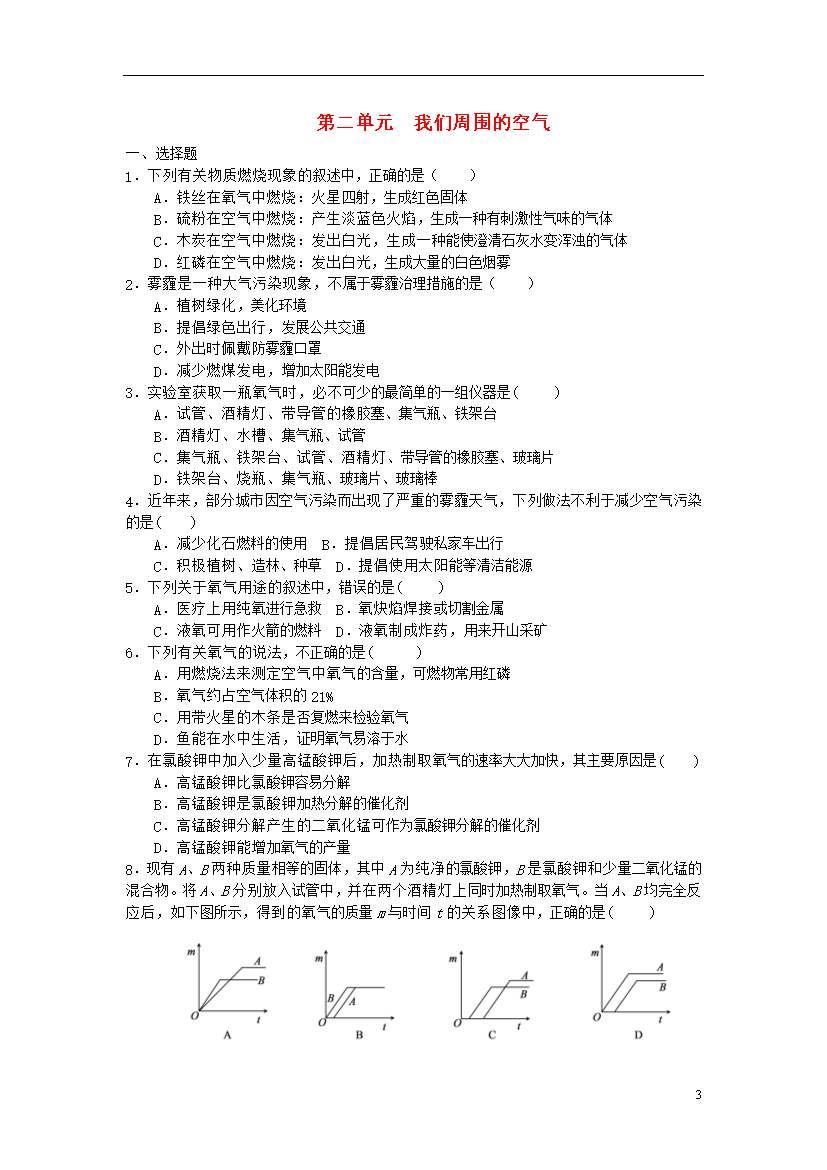 第二单元　我们周围的空气
一、选择题
1．下列有关物质燃烧现象的叙述中，正确的是（　　）
A．铁丝在氧气中燃烧：火星四射，生成红色固体
B．硫粉在空气中燃烧：产生淡蓝色火焰，生成一种有刺激性气味的气体
C．木炭在空气中燃烧：发出白光，生成一种能使澄清石灰水变浑浊的气体
D．红磷在空气中燃烧：发出白光，生成大量的白色烟雾
2．雾霾是一种大气污染现象，不属于雾霾治理措施的是（　　）
A．植树绿化，美化环境
B．提倡绿色出行，发展公共交通
C．外出时佩戴防雾霾口罩
D．减少燃煤发电，增加太阳能发电
3．实验室获取一瓶氧气时，必不可少的最简单的一组仪器是(　　)
A．试管、酒精灯、带导管的橡胶塞、集气瓶、铁架台
B．酒精灯、水槽、集气瓶、试管
C．集气瓶、铁架台、试管、酒精灯、带导管的橡胶塞、玻璃片
D．铁架台、烧瓶、集气瓶、玻璃片、玻璃棒
4．近年来，部分城市因空气污染而出现了严重的雾霾天气，下列做法不利于减少空气污染
的是(　　)
A．减少化石燃料的使用　B．提倡居民驾驶私家车出行
C．积极植树、造林、种草　D．提倡使用太阳能等清洁能源
5．下列关于氧气用途的叙述中，错误的是(　　)
A．医疗上用纯氧进行急救　B．氧炔焰焊接或切割金属
C．液氧可用作火箭的燃料　D．液氧制成炸药，用来开山采矿
6．下列有关氧气的说法，不正确的是(　　)
A．用燃烧法来测定空气中氧气的含量，可燃物常用红磷
B．氧气约占空气体积的21%
C．用带火星的木条是否复燃来检验氧气
D．鱼能在水中生活，证明氧气易溶于水
7．在氯酸钾中加入少量高锰酸钾后，加热制取氧气的速率大大加快，其主要原因是(　　)
A．高锰酸钾比氯酸钾容易分解
B．高锰酸钾是氯酸钾加热分解的催化剂
C．高锰酸钾分解产生的二氧化锰可作为氯酸钾分解的催化剂
D．高锰酸钾能增加氧气的产量
8．现有A、B两种质量相等的固体，其中A为纯净的氯酸钾，B是氯酸钾和少量二氧化锰的
混合物。将A、B分别放入试管中，并在两个酒精灯上同时加热制取氧气。当A、B均完全反
应后，如下图所示，得到的氧气的质量m与时间t的关系图像中，正确的是(　　)
m A B O t A
m B A O t B
m A B O t C
m A B O t D
3